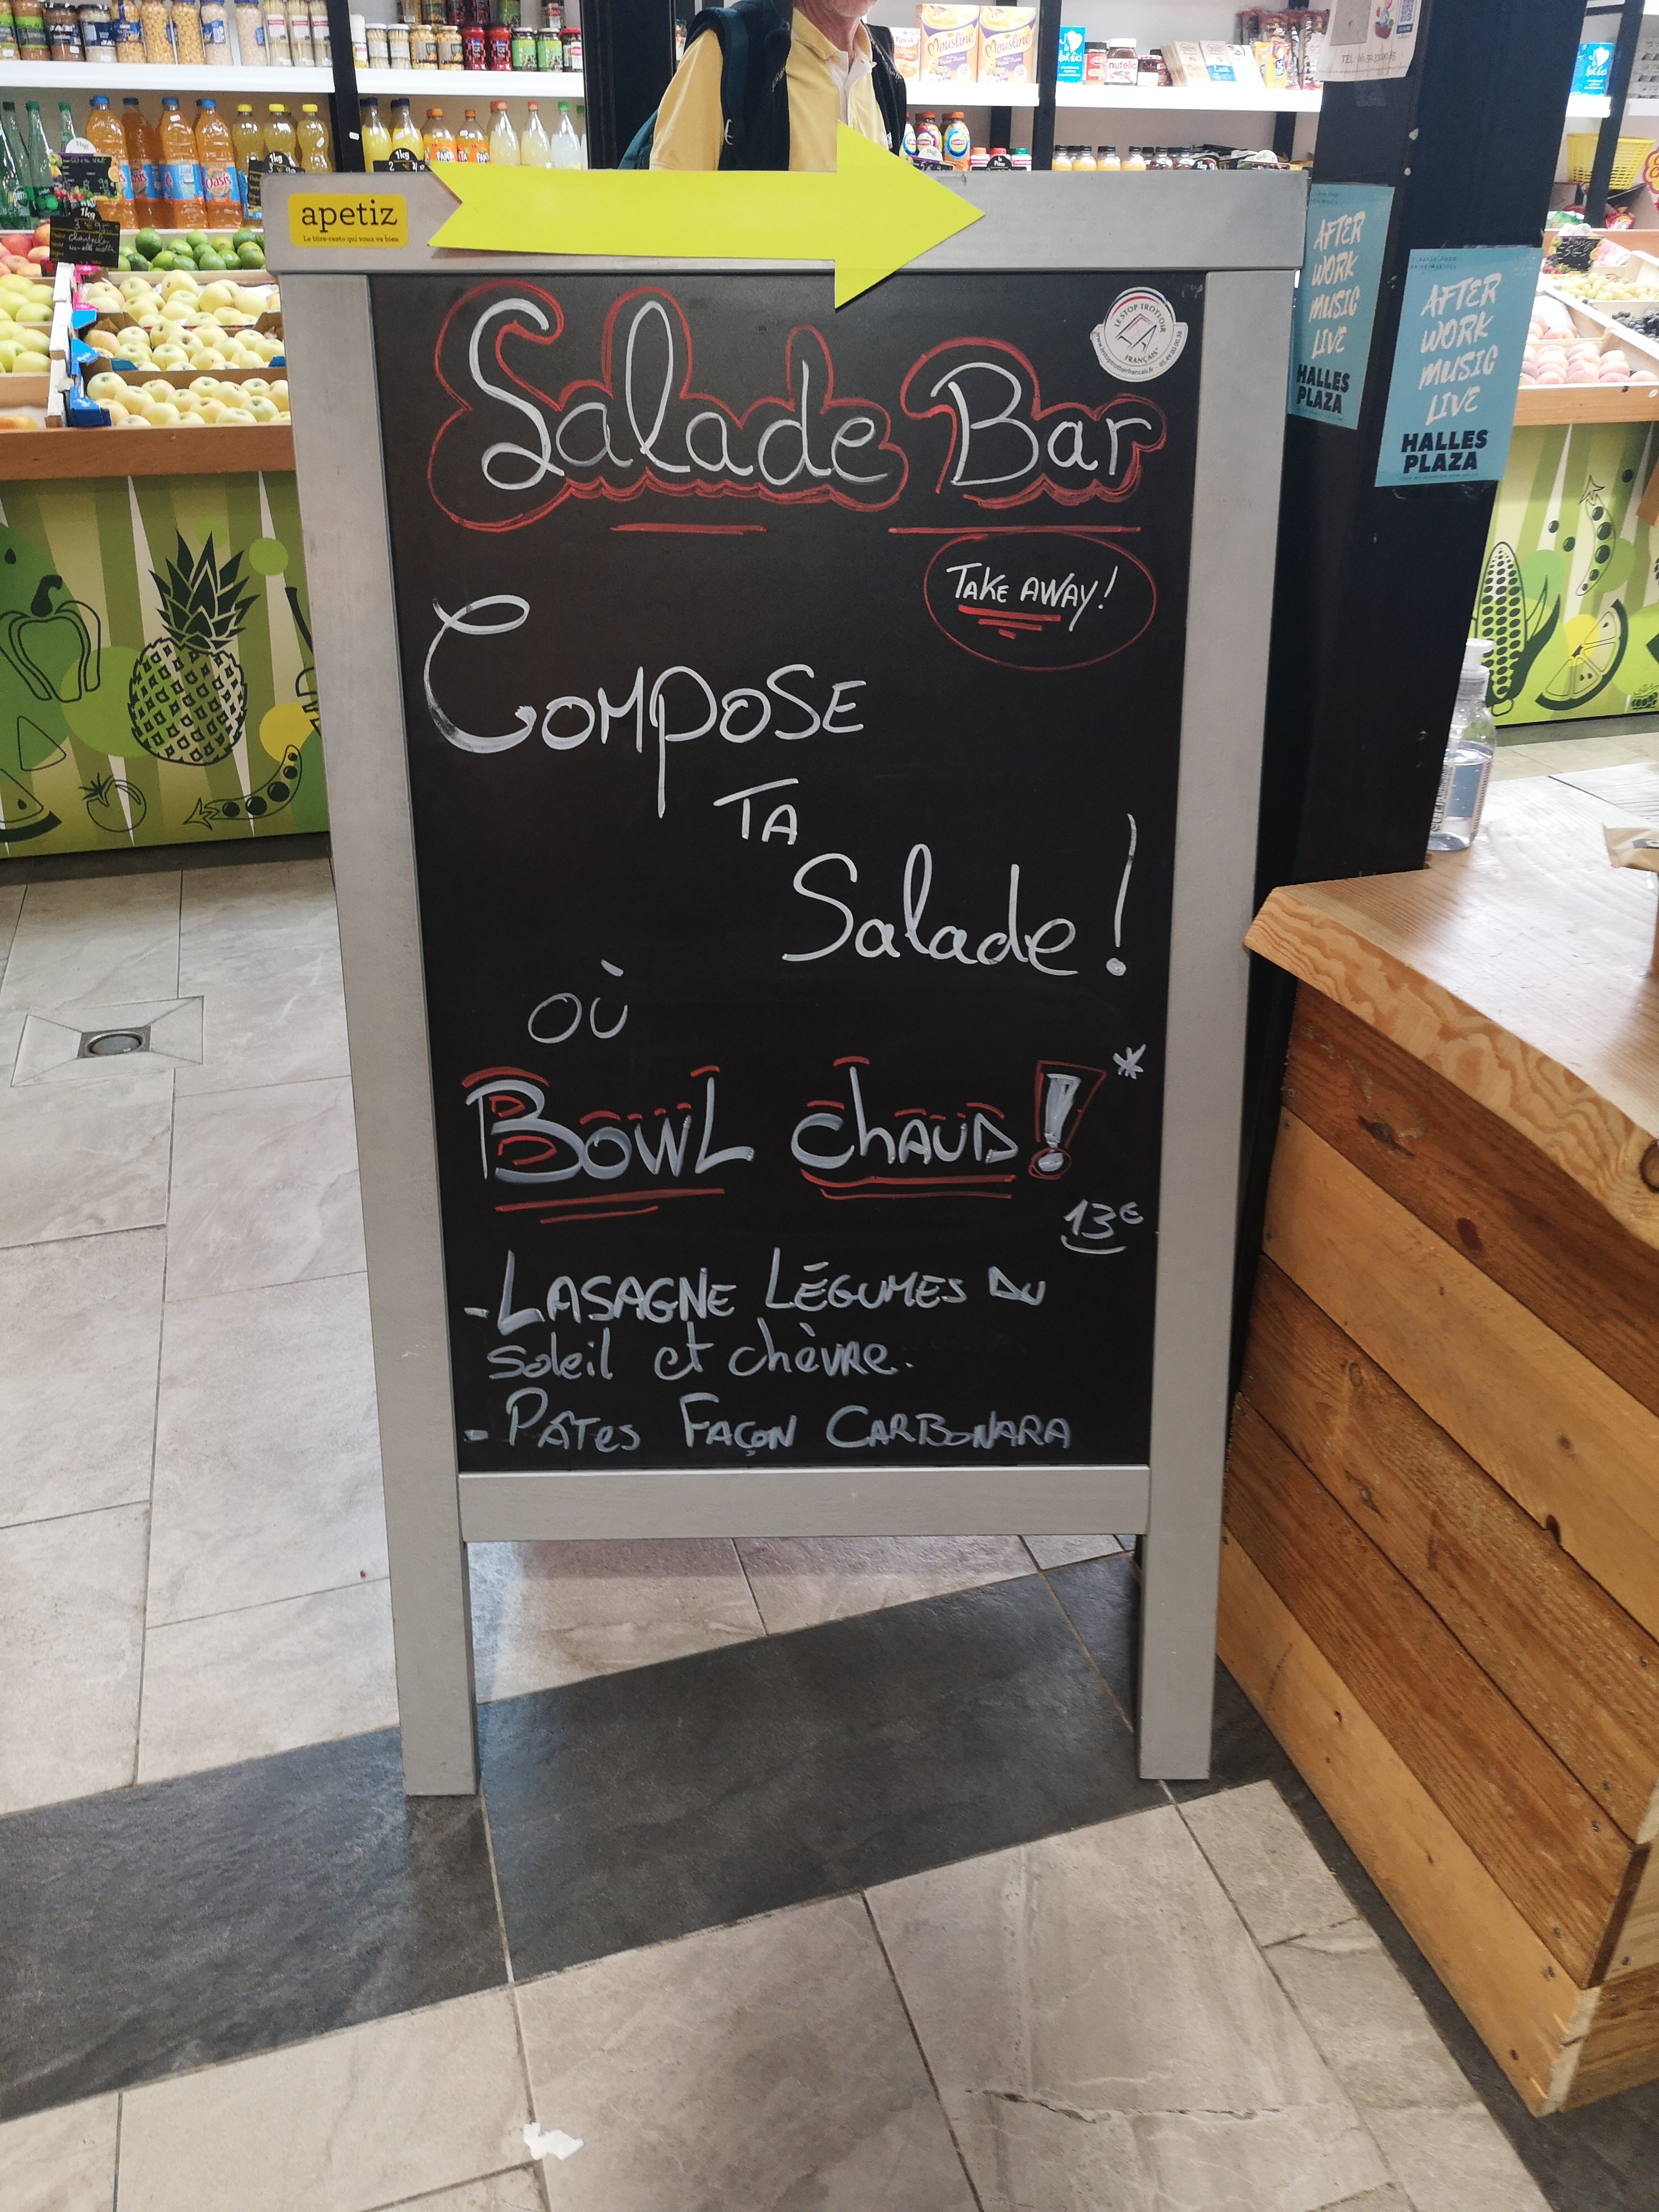 Mousline
Mousline
nutella
TEL:
Oasis
1kg
1kg
1kg
apetiz
Le titre-resto qui vous va bien
LE STOP TROTTOIR
FRANÇAIS
Salade Bar
TAKE AWAY!
COMPOSE
TA
Salade!
où
BOWL chAUD! *
13€
- LASAGNE LÉGUMES DU
Soleil et chèvre.
- PÂTES FAÇON CARBONARA
AFTER
WORK
MUSIC
LIVE
HALLES
PLAZA
AFTER
WORK
MUSIC
LIVE
HALLES
PLAZA